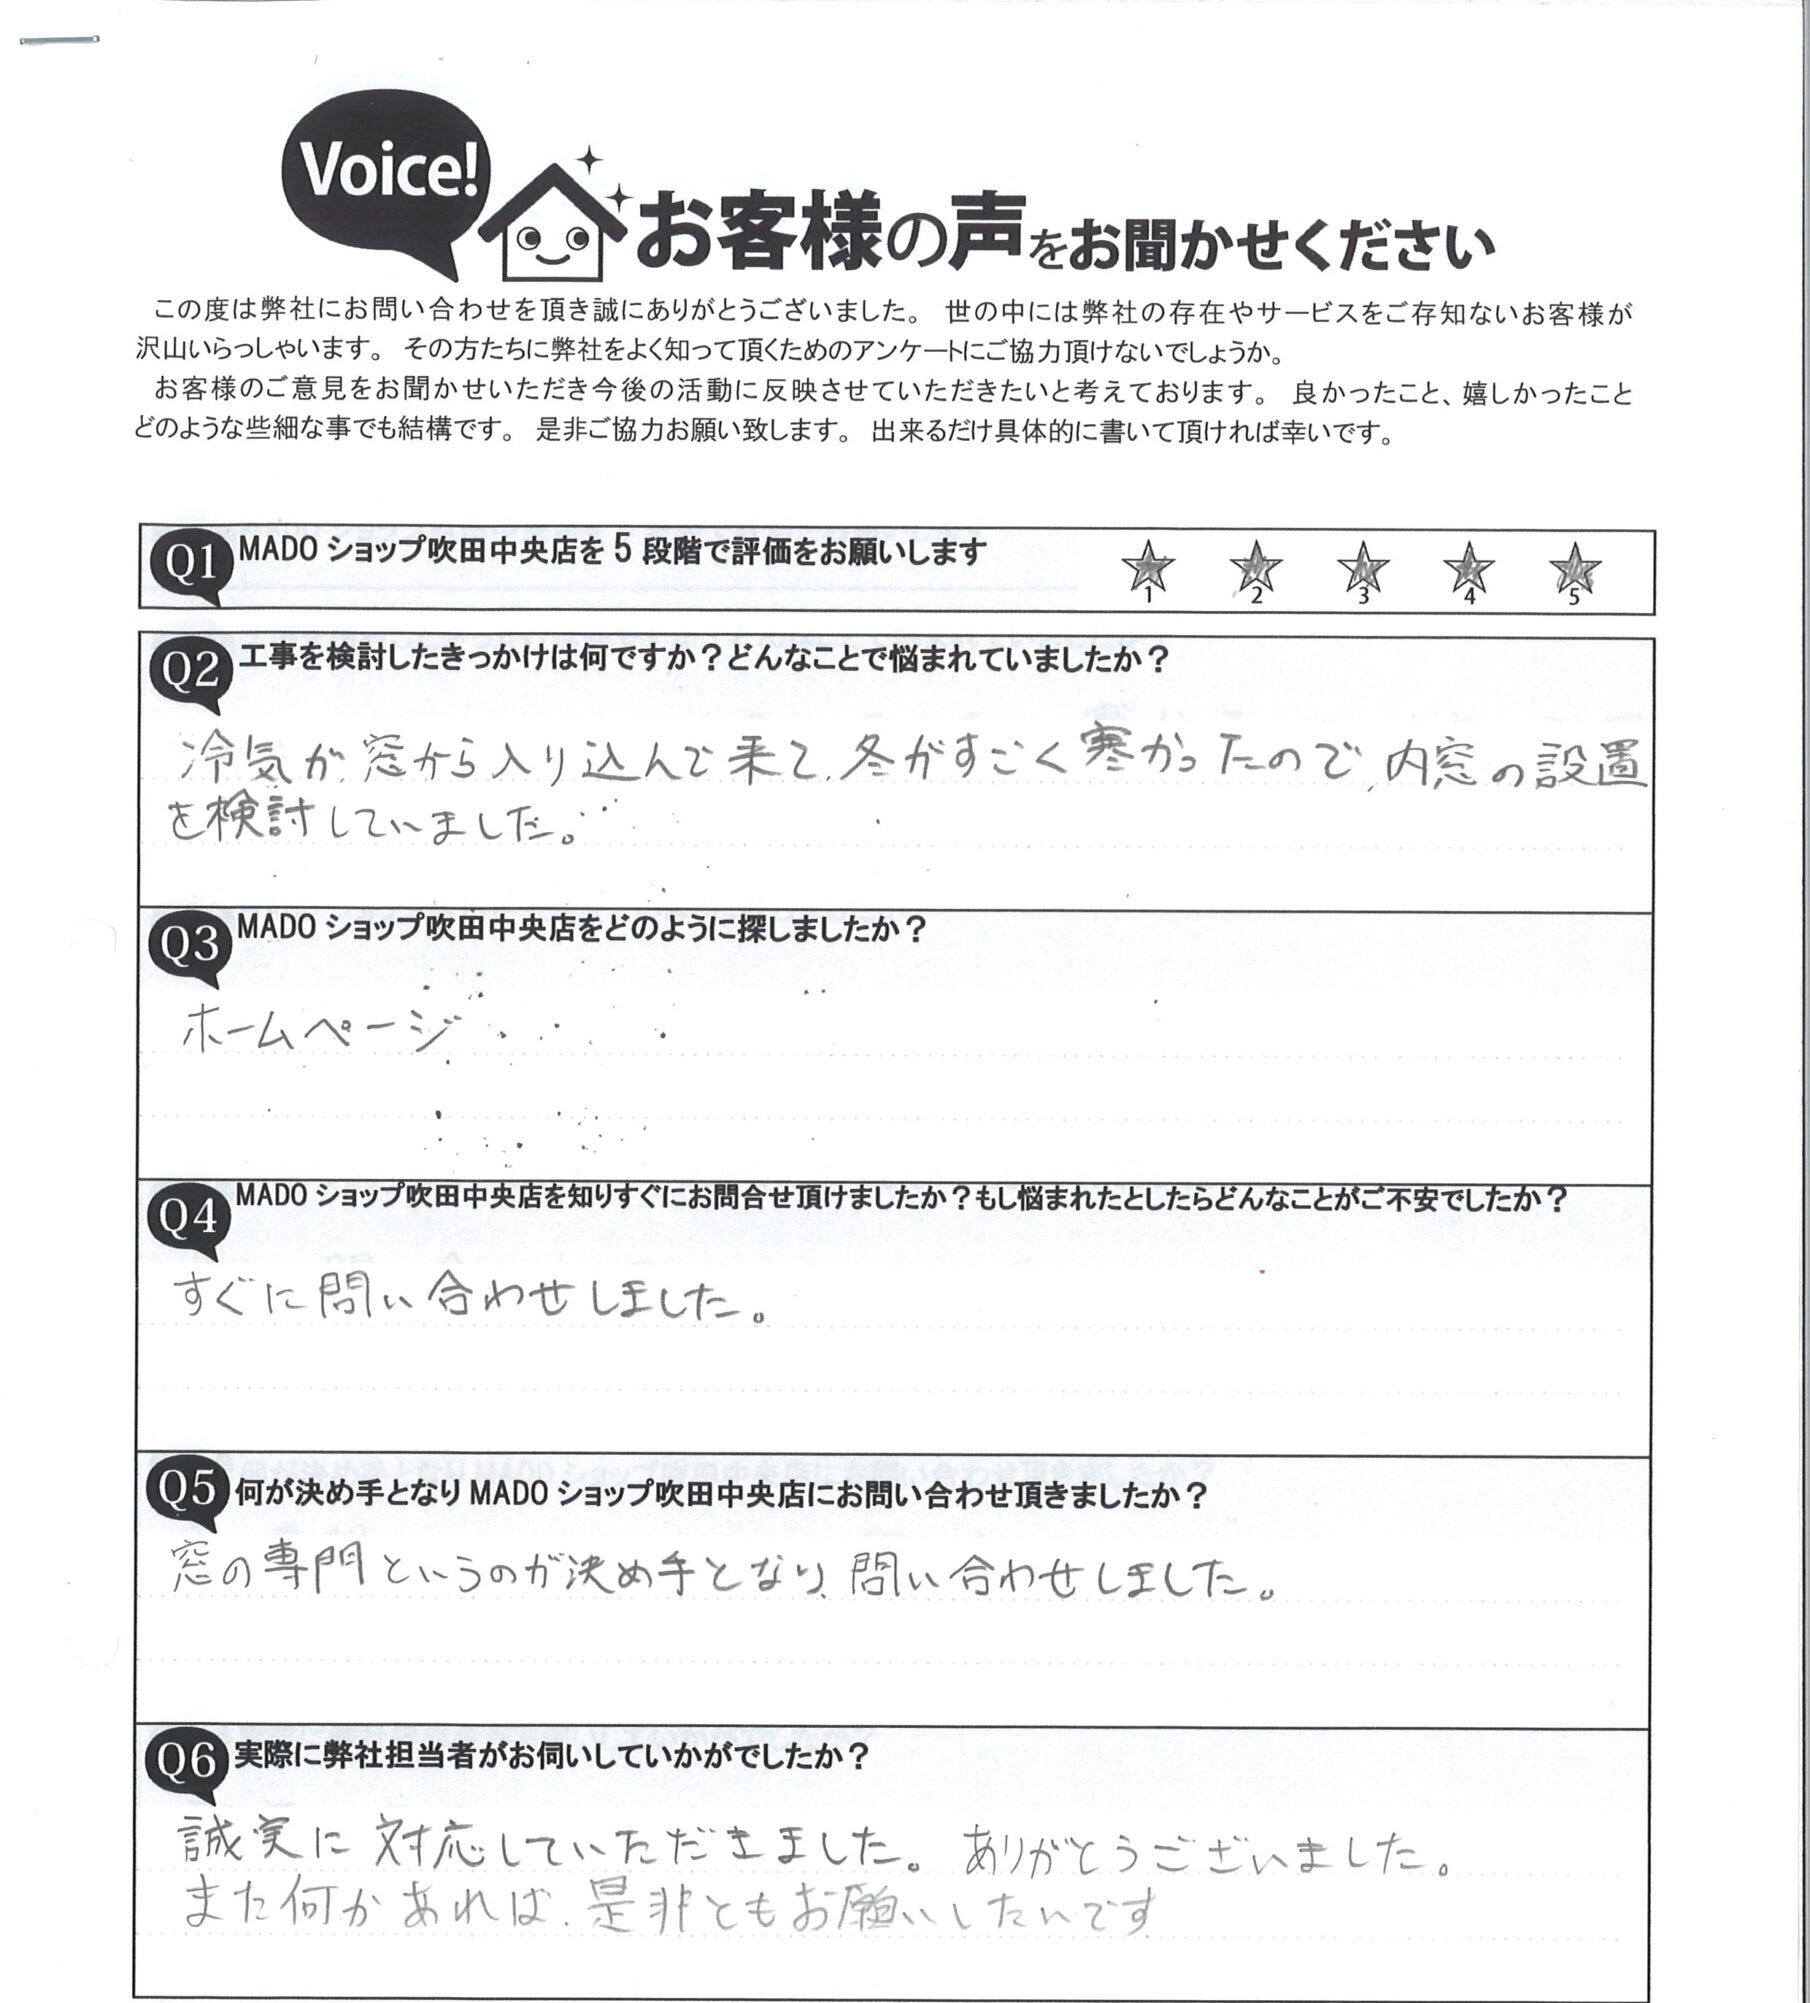 Voice!
お客様の声をお聞かせください
この度は弊社にお問い合わせを頂き誠にありがとうございました。 世の中には弊社の存在やサービスをご存知ないお客様が
沢山いらっしゃいます。 その方たちに弊社をよく知って頂くためのアンケートにご協力頂けないでしょうか。
お客様のご意見をお聞かせいただき今後の活動に反映させていただきたいと考えております。 良かったこと、嬉しかったこと
どのような些細な事でも結構です。 是非ご協力お願い致します。 出来るだけ具体的に書いて頂ければ幸いです。
Q1 MADOショップ吹田中央店を5段階で評価をお願いします
1 2 3 4 5
Q2 工事を検討したきっかけは何ですか？どんなことで悩まれていましたか？
冷気が、窓から入り込んで来て、冬がすごく寒かったので、内窓の設置
を検討していました。
Q3 MADOショップ吹田中央店をどのように探しましたか？
ホームページ
Q4 MADOショップ吹田中央店を知りすぐにお問合せ頂けましたか？もし悩まれたとしたらどんなことがご不安でしたか？
すぐに問い合わせしました。
Q5 何が決め手となりMADOショップ吹田中央店にお問い合わせ頂きましたか？
窓の専門というのが決め手となり、問い合わせしました。
Q6 実際に弊社担当者がお伺いしていかがでしたか？
誠実に対応していただきました。ありがとうございました。
また何かあれば、是非ともお願いしたいです